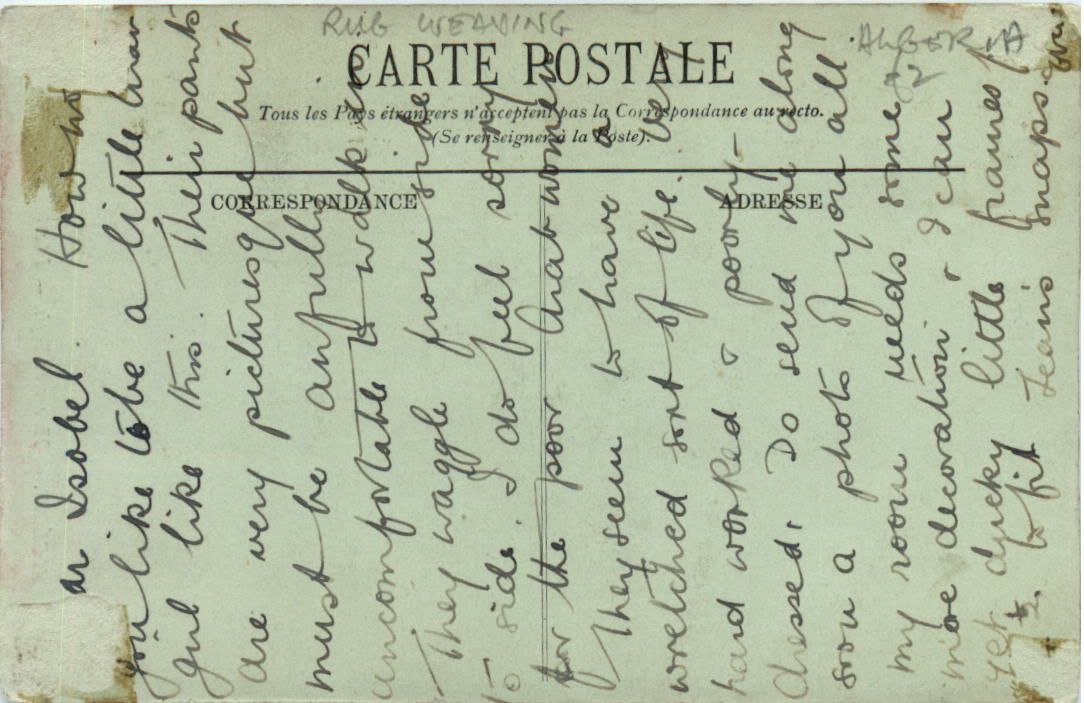 RUG WEAVING
ALGERIA
CARTE POSTALE
Tous les Pays étrangers n'acceptent pas la Correspondance au recto.
(Se renseigner à la Poste).
CORRESPONDANCE
ADRESSE
ar Isobel. How wd
you like to be a little Arab
girl like this. Their pants
are very picturesque but
must be awfully
uncomfortable to walk in
They waggle from side
to side. I do feel sorry
for the poor Arab women
They seem to have a
wretched sort of life.
hard worked & poorly
dressed. Do send me along
soon a photo of you all
my room needs some
more decoration & I can
get ducky little frames
to fit Jean's snaps.